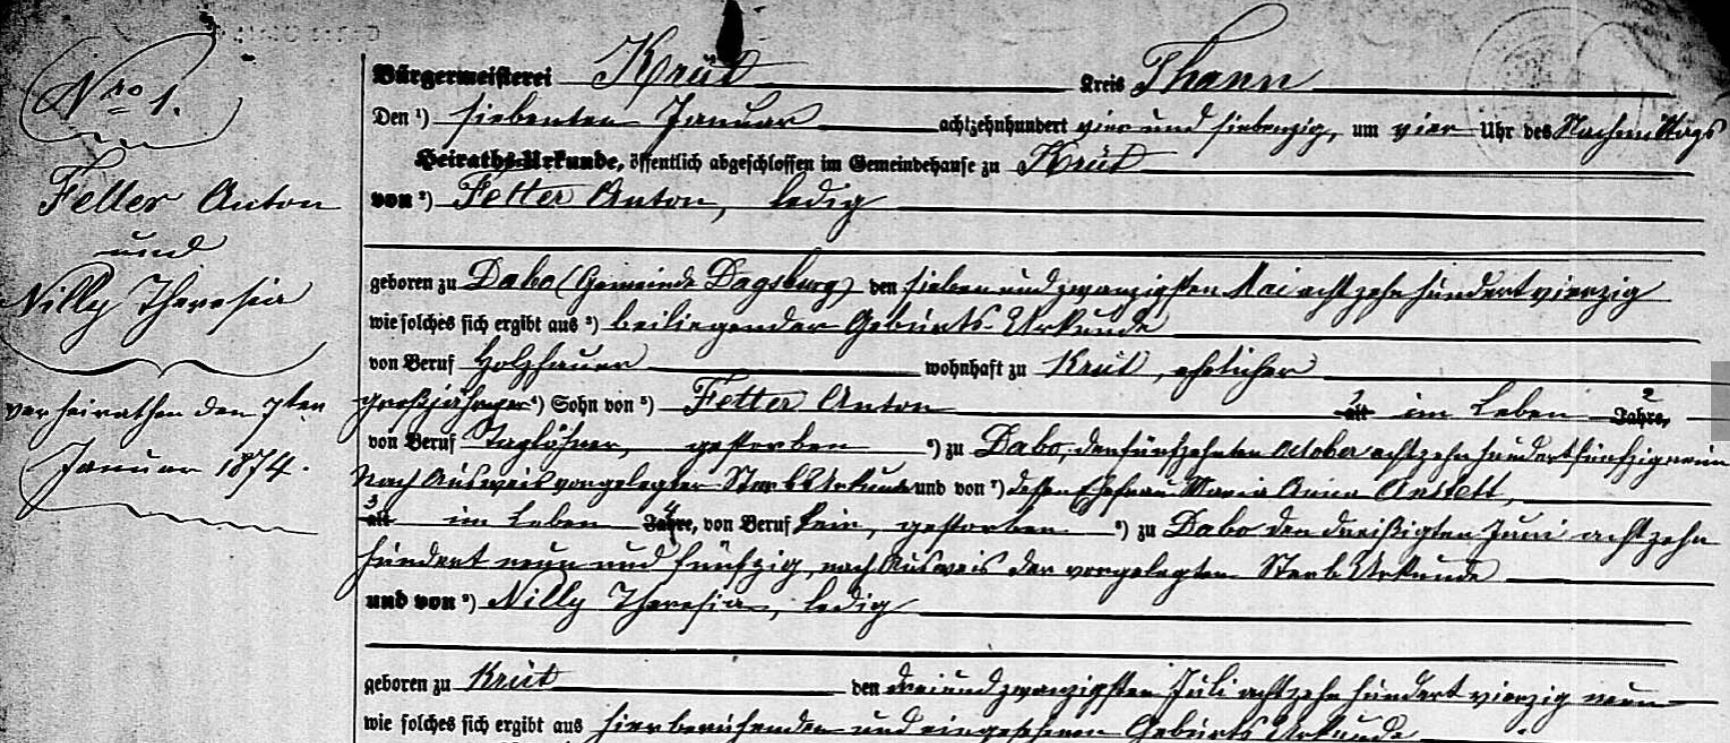 Nro 1.
Fetter Anton
und
Nilly Theresia
verheirathen den 7ten
Januar 1874.
Bürgermeisterei Krüt Kreis Thann
Den ¹) siebenten Januar achtzehnhundert vier und siebenzig, um vier Uhr des Nachmittags
Heiraths-Urkunde, öffentlich abgeschlossen im Gemeindehause zu Krüt
von ²) Fetter Anton, ledig
geboren zu Dabo (Gemeinde Dagsburg) den sieben und zwanzigsten Mai achtzehn hundert vierzig
wie solches sich ergibt aus ³) beiliegender Geburts-Urkunde
von Beruf Holzhauer wohnhaft zu Krüt, ehelicher
großjähriger ⁴) Sohn von ⁵) Fetter Anton alt im Leben Jahre,
von Beruf Taglöhner, gestorben ⁶) zu Dabo, den fünfzehnten October achtzehn hundert fünfzig neun
Nach Ausweis vorgelegter Sterb Urkunde und von ⁷) dessen Ehefrau Maria Anna Anstett,
alt im Leben Jahre, von Beruf kein, gestorben ⁸) zu Dabo den dreißigten Juni achtzehn
hundert neun und fünfzig, nach Ausweis der vorgelegten Sterb Urkunde
und von ⁹) Nilly Theresia, ledig
geboren zu Krüt den dreiundzwanzigsten Juli achtzehn hundert vierzig neun
wie solches sich ergibt aus hier beruhenden und eingesehenen Geburts Urkunde